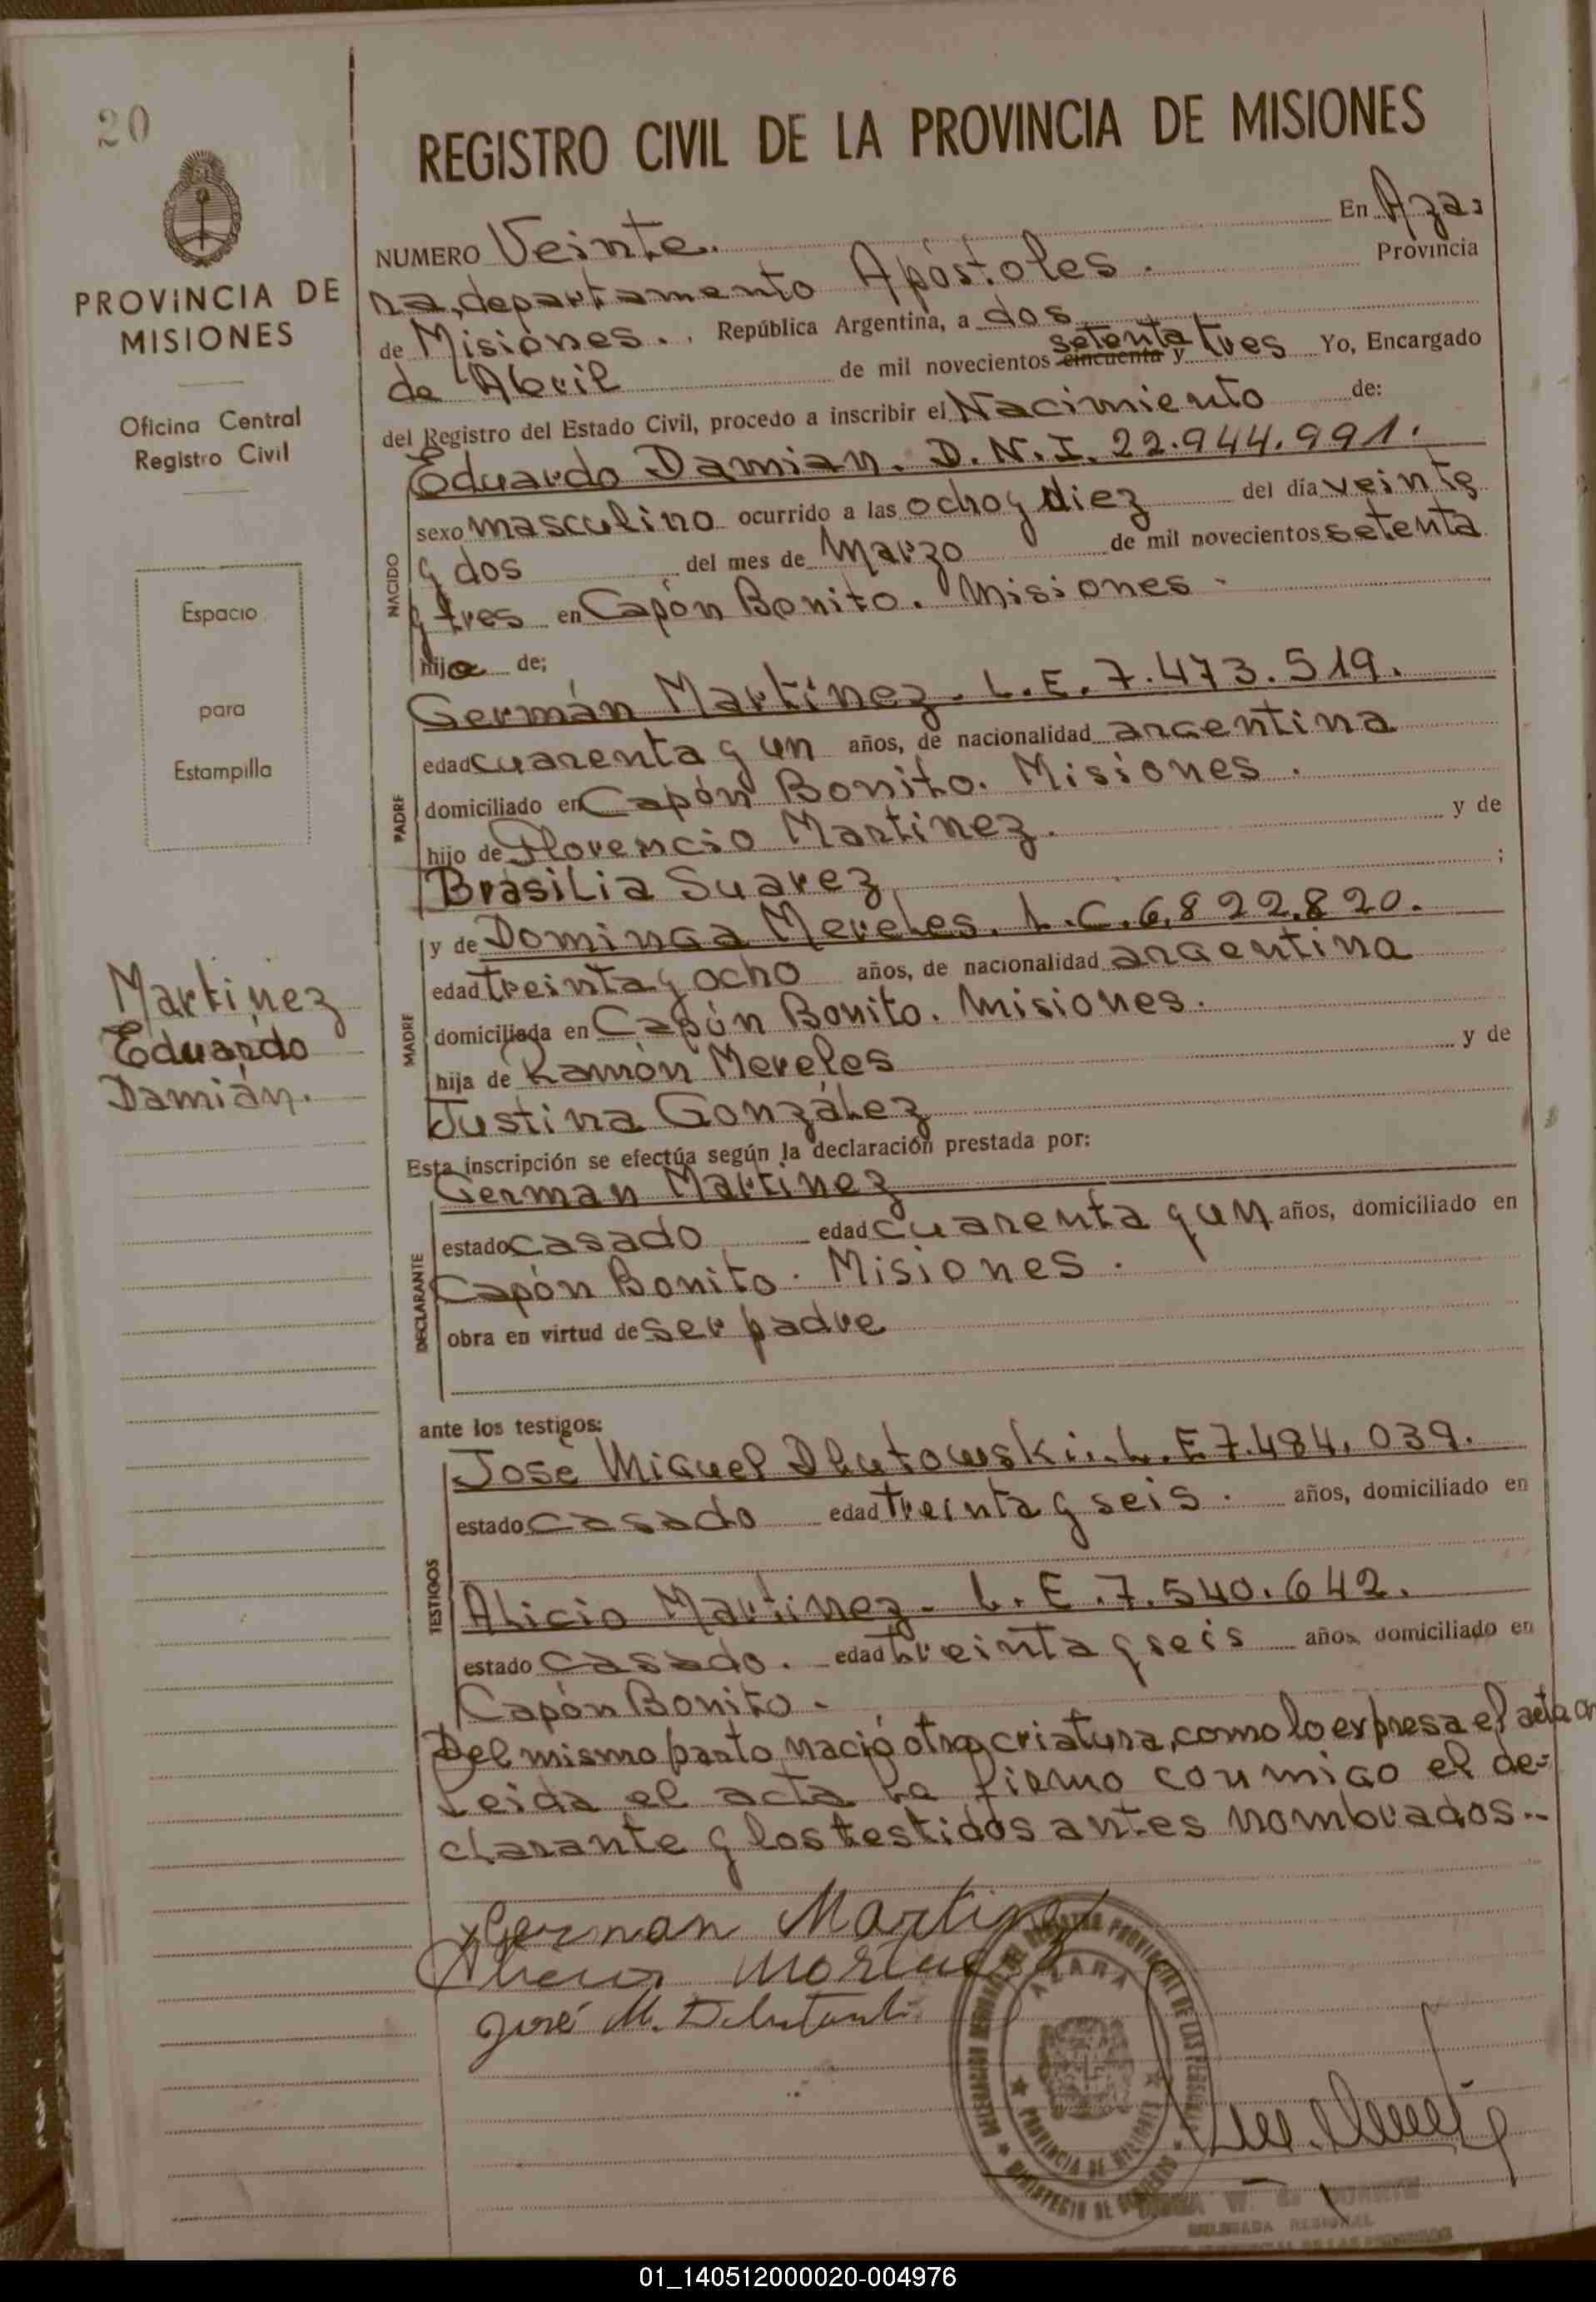 20
PROVINCIA DE
MISIONES
Oficina Central
Registro Civil
Espacio
para
Estampilla
Martinez
Eduardo
Damián.
REGISTRO CIVIL DE LA PROVINCIA DE MISIONES
NUMERO Veinte. En Aza=
ra, departamento Apóstoles. Provincia
de Misiones. , República Argentina, a dos
de Abril de mil novecientos cincuenta setenta y tres Yo, Encargado
del Registro del Estado Civil, procedo a inscribir el Nacimiento de:
Eduardo Damian. D.N.I. 22.944.991.
NACIDO
sexo masculino ocurrido a las ocho y diez del día veinte
y dos del mes de Marzo de mil novecientos setenta
y tres en Capón Bonito. Misiones -
hijo de;
Germán Martinez. L.E. 7.473.519.
PADRE
edad cuarenta y un años, de nacionalidad argentina
domiciliado en Capón Bonito. Misiones.
hijo de Florencio Martinez. y de
Brasilia Suarez ;
y de Dominga Mereles. L.C. 6,822,820.
MADRE
edad treinta y ocho años, de nacionalidad argentina
domiciliada en Capón Bonito. Misiones.
hija de Ramón Mereles y de
Justina González
Esta inscripción se efectúa según la declaración prestada por:
German Martinez
DECLARANTE
estado casado edad cuarenta y un años, domiciliado en
Capón Bonito. Misiones.
obra en virtud de ser padre
ante los testigos:
José Miguel Dlutowski. L.E 7.484.039.
TESTIGOS
estado casado edad treinta y seis. años, domiciliado en
Alicio Martinez - L.E.7.540.642.
estado casado. edad treinta y seis años, domiciliado en
Capón Bonito.
Del mismo parto nació otra criatura, como lo expresa el acta
Leida el acta la firmo conmigo el de=
clarante y los testidos antes nombrados..
German Martinez
José M.
REGISTRO PROVINCIAL DE LAS PERSONAS
AZARA
PROVINCIA DE MISIONES
MINISTERIO DE GOBIERNO
DELEGADA REGIONAL
01_140512000020-004976